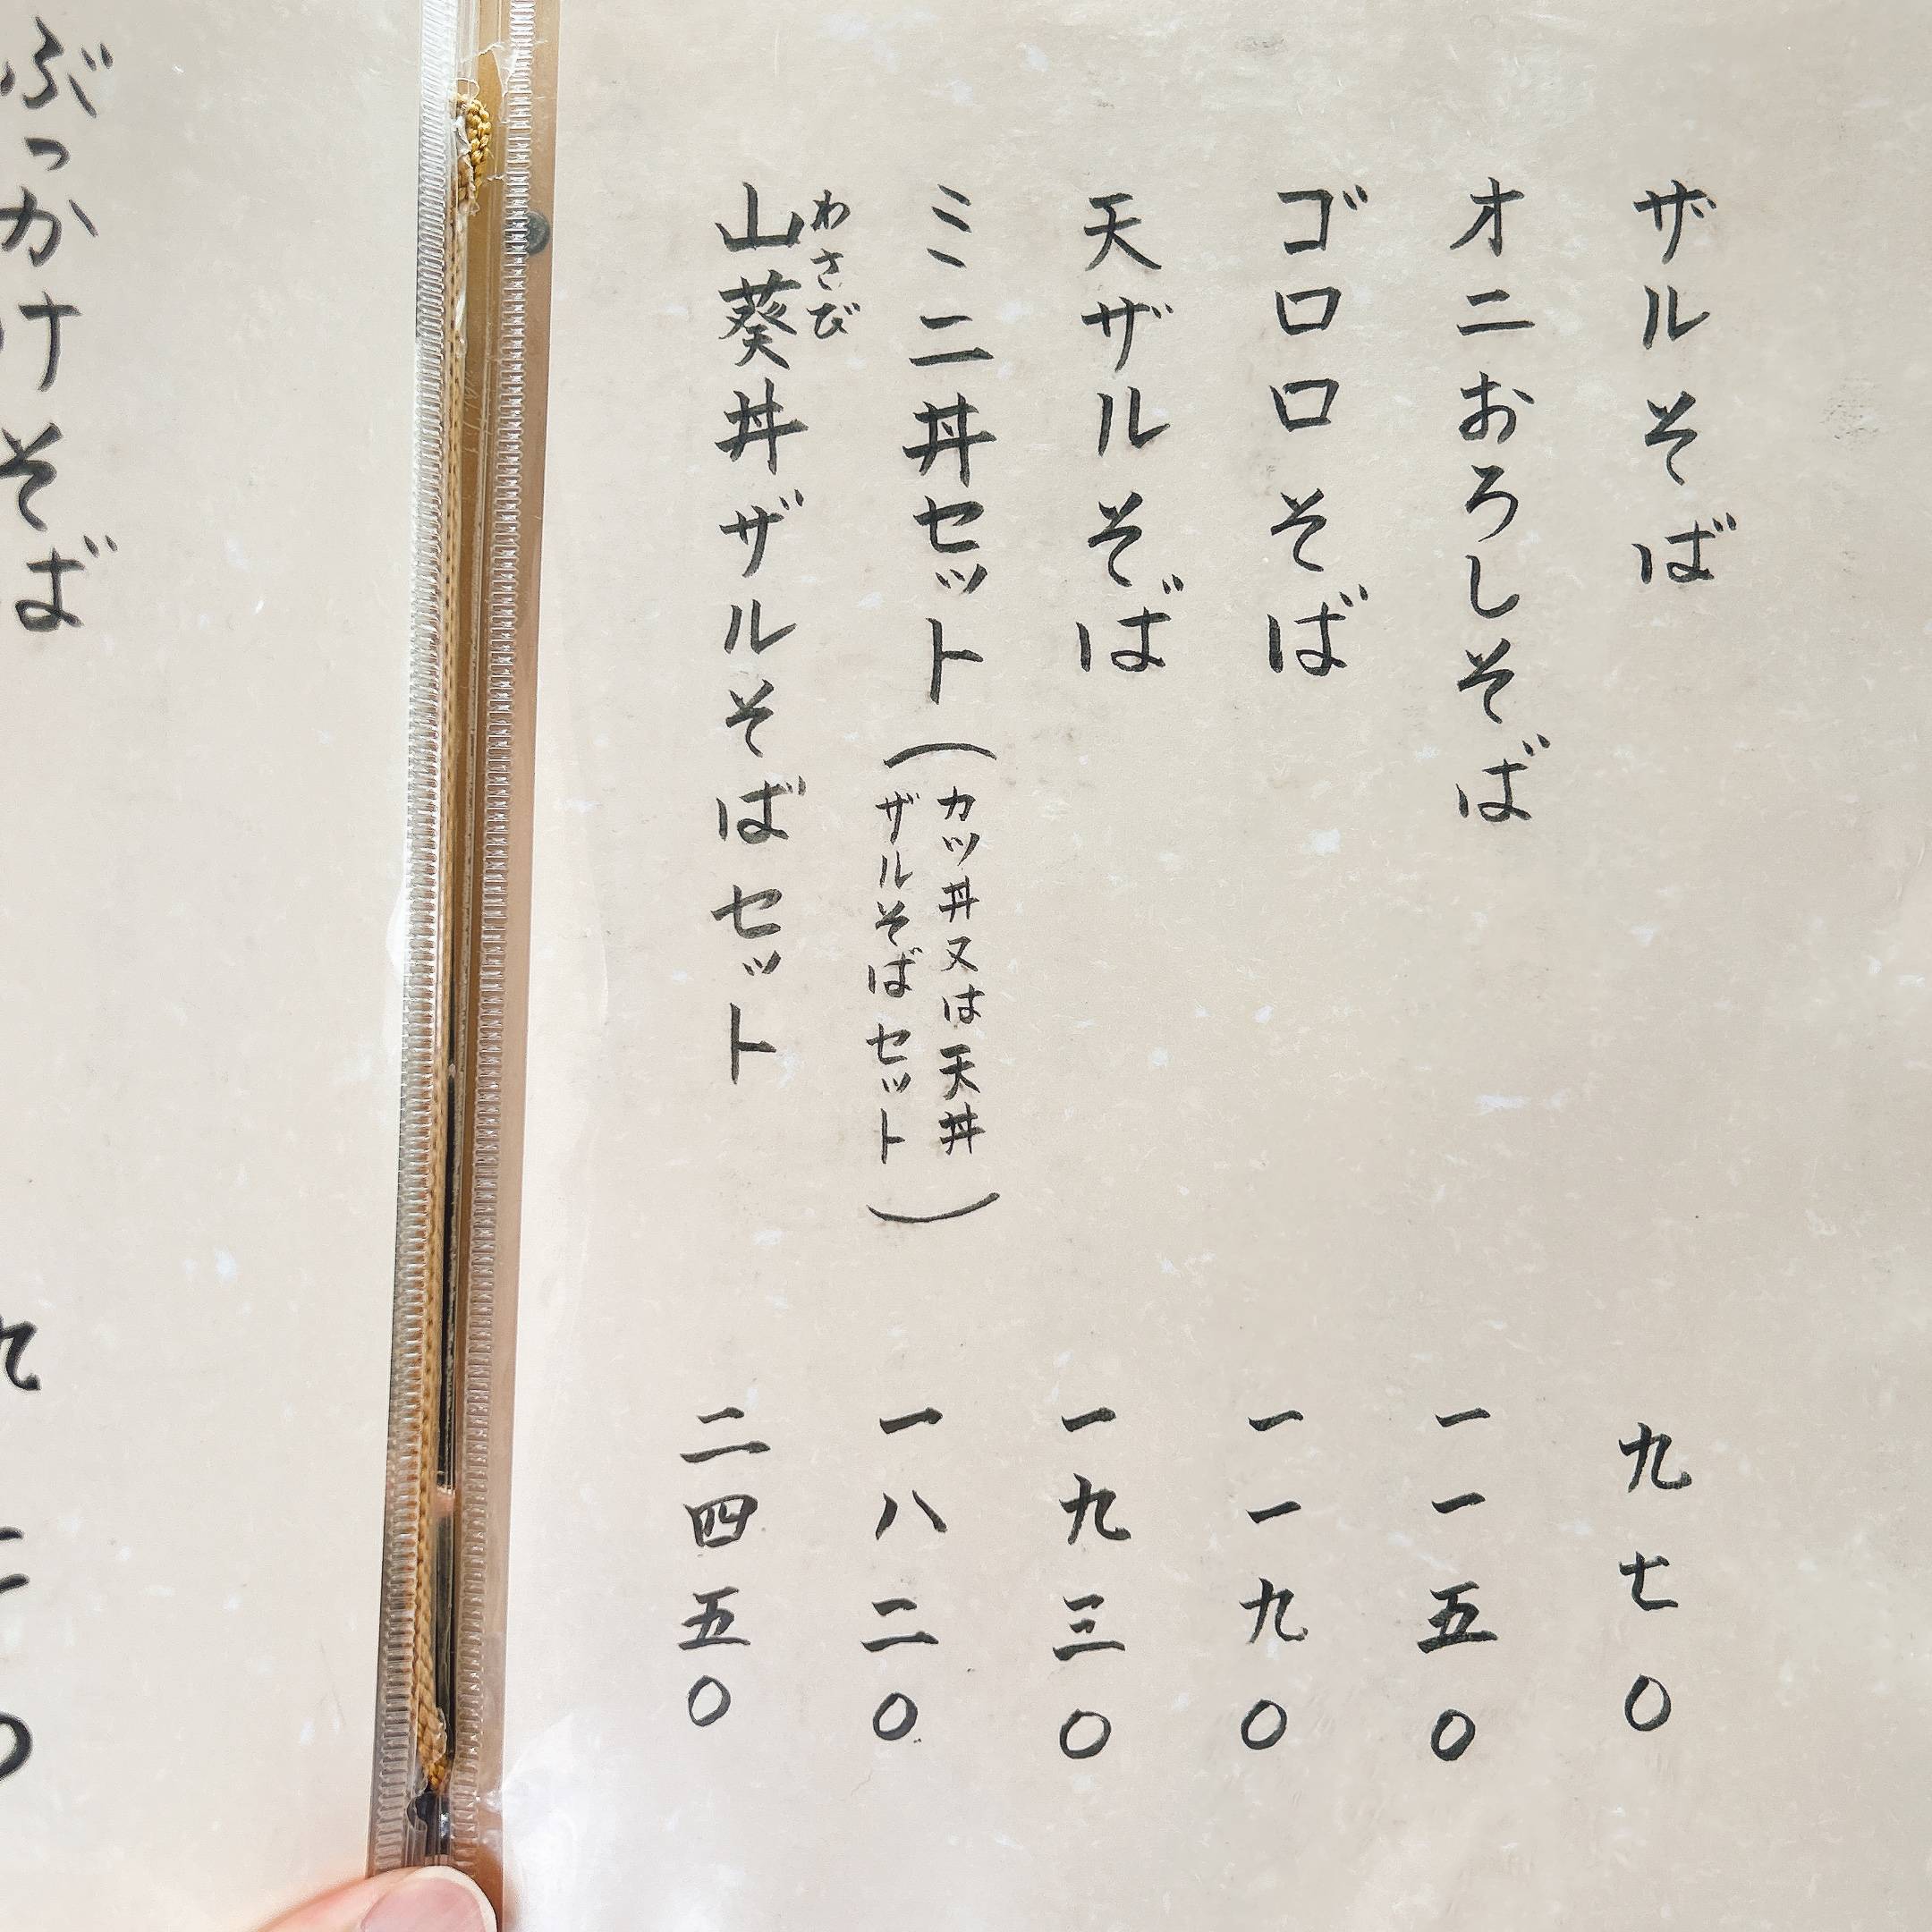 ザルそば 九七〇
オニおろしそば 一一五〇
ゴロロそば 一一九〇
天ザルそば 一九三〇
ミニ丼セット(カツ丼又は天丼
ザルそばセット) 一八二〇
わさび
山葵丼ザルそばセット 二四五〇
ぶっかけそば